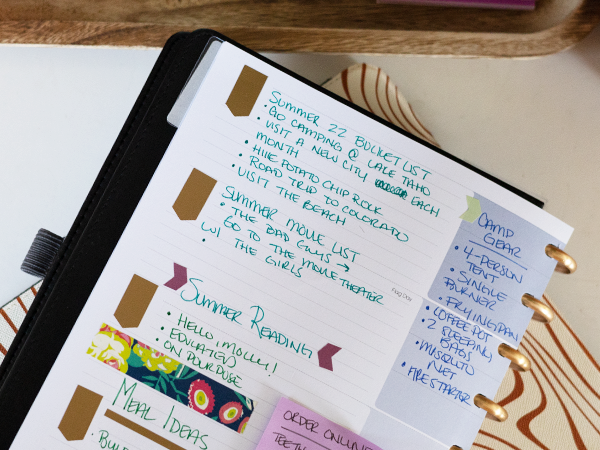 SUMMER 22 BUCKET LIST
• GO CAMPING @ LAKE TAHO
• VISIT A NEW CITY EACH
MONTH
• HIKE POTATO CHIP ROCK
• ROAD TRIP TO COLORADO
• VISIT THE BEACH
SUMMER MOVIE LIST
• THE BAD GUYS →
GO TO THE MOVIE THEATER
W/ THE GIRLS
•
SUMMER READING
• HELLO, MOLLY!
• EDUCATED
• ON POURPOSE
MEAL IDEAS
CAMP
GEAR
• 4-PERSON
TENT
• SINGLE
BURNER
• FRYING PAN
• COFFEE POT
• 2 SLEEPING
BAGS
• MOSQUITO
NET
• FIRE STARTER
ORDER ONLINE